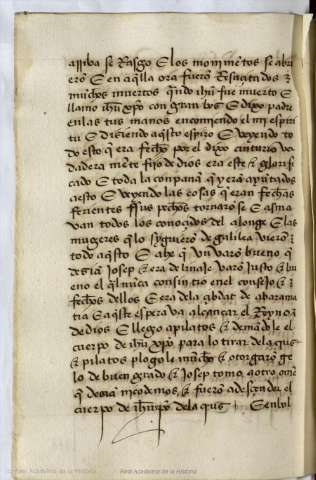 arriba se Rasgo E los monimẽtos se abri
erõ E en aq̃lla ora fuerõ Resucitados ⁊
muchos muertos qñdo ihũ fue muerto E
llamo ihũ xp̃o con gran bos E dixo padre
en las tus manos encomiendo el mj espiri
tu E disiendo aq̃sto espiro E veyendo to
do esto q̃ era fecho por el dixo cinturio va
dadera mẽte fijo de dios era este ⁊ glorifi
cado E toda la conpaña q̃ y erã ayũtados
a esto E veyendo las cosas q̃ eran fechas
ferientes sus pechos tornarõ se E asma
van todos los conoçidos del alonge E las
mugeres q̃ lo syguierõ de galilea vierõ ⁊
todo aq̃sto E ahe q̃ vn varõ bueno q̃
desiã Josep ⁊ era de linaje varõ Justo ⁊ bu
eno el q̃l nũca consintio en el consejo ⁊
fechos dellos E era dela abdat de abarama
tia E aq̃ste espera va alcançar el Reyno ⁊
de dios E llego a pilatos ⁊ demãdo le el
cuerpo de ihũ xp̃o para lo tirar dela q̃us
⁊ pilatos plogo le mucho ⁊ otorgarõ ge
lo de buen grado ⁊ Josep tomo a otro om̃e
q̃ desiã nicodemos, ⁊ fuerõ a desçender el
cuerpo de ihũ xp̃o dela q̃us
Real Academia de la Historia
Real Academia de la Historia